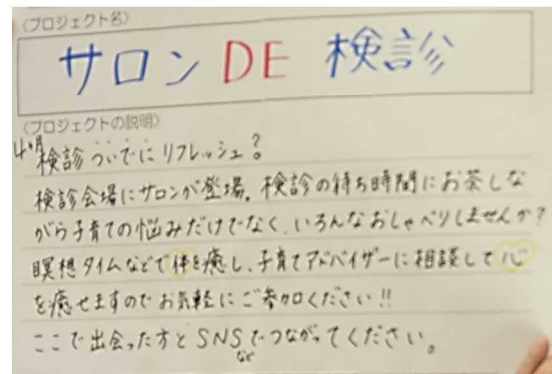 〈プロジェクト名〉
サロン DE 検診
〈プロジェクトの説明〉
4ヶ月
検診ついでにリフレッシュ?
検診会場にサロンが登場。検診の待ち時間にお茶しな
がら子育ての悩みだけでなく、いろんなおしゃべりしませんか?
瞑想タイムなどで体を癒し、子育てアドバイザーに相談して心
を癒せますのでお気軽にご参加ください!!
ここで出会った方とSNSなどでつながってください。